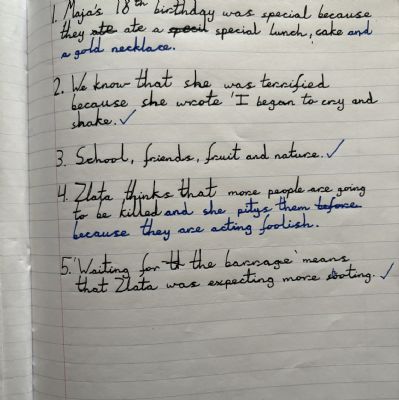 1. Maja's 18th birthday was special because
they ate ate a special special lunch, cake and
a gold necklace.
2. We know that she was terrified
because she wrote 'I began to cry and
shake. ✓
3. School, friends, fruit and nature. ✓
4. Zlata thinks that more people are going
to be killed and she pitys them before
because they are acting foolish.
5. 'Waiting for the barrage' means
that Zlata was expecting more ✓